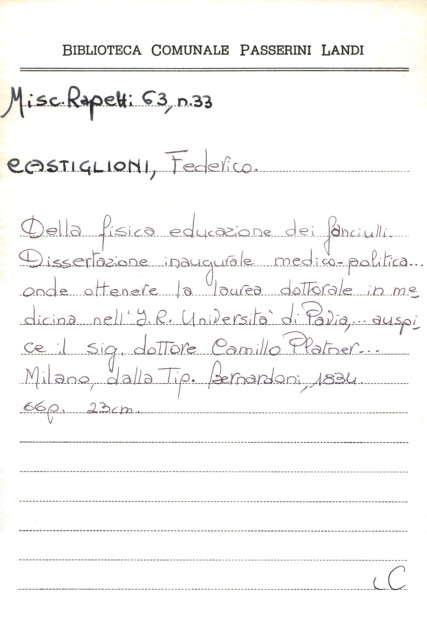 BIBLIOTECA COMUNALE PASSERINI LANDI
Misc. Rapetti 63, n.33
CASTIGLIONI, Federico.
Della fisica educazione dei fanciulli.
Dissertazione inaugurale medico-politica...
onde ottenere la laurea dottorale in me
dicina nell' I.R. Università di Pavia,... auspi
ce il sig. dottore Camillo Platner...
Milano, dalla Tip. Bernardoni, 1834.
66p. 23cm.
LC